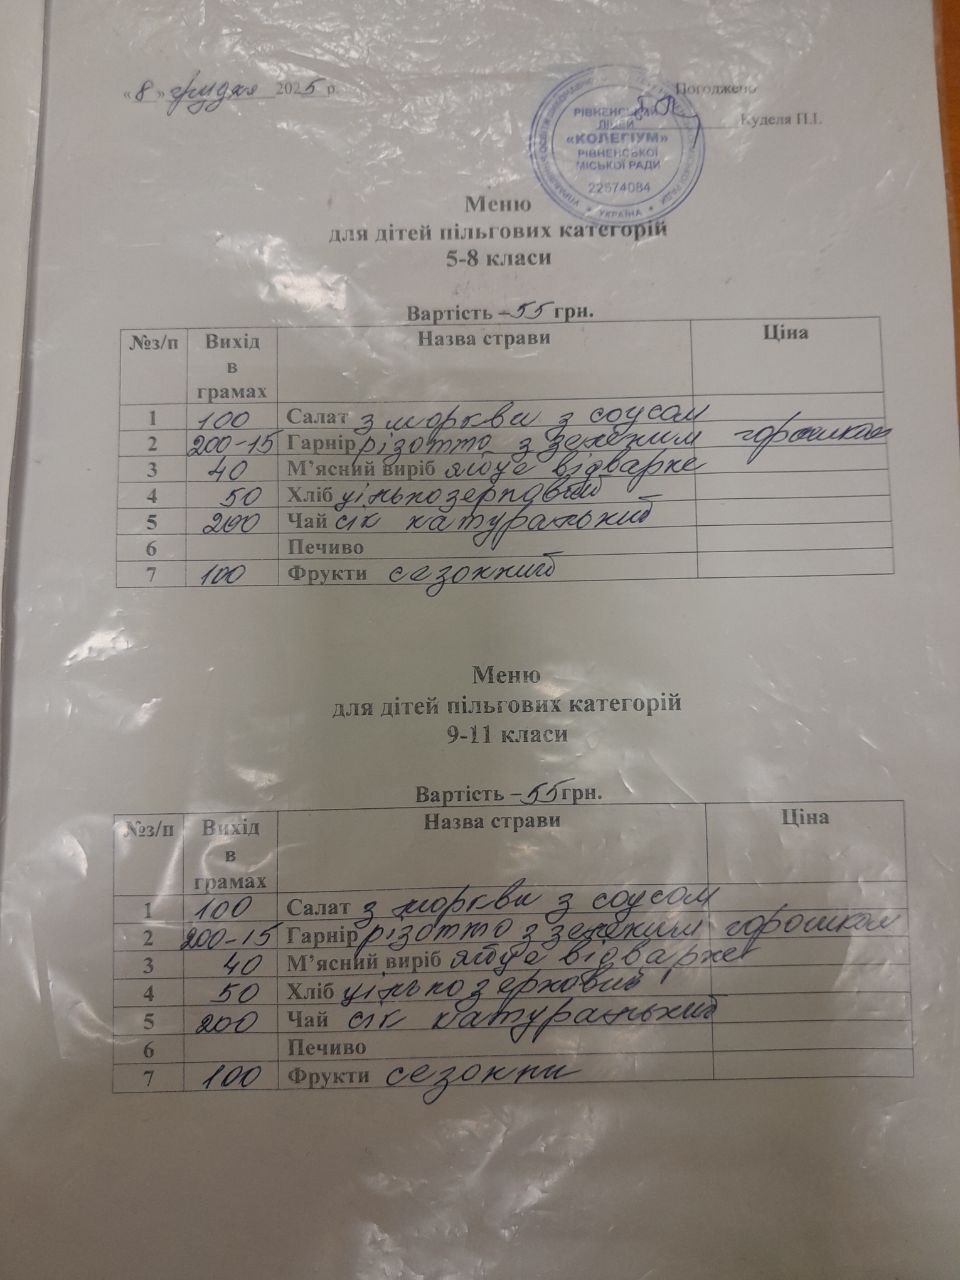 «8» грудня 2025 р.
Погоджено
Куделя П.І.
РІВНЕНСЬКИЙ
ЛІЦЕЙ
«КОЛЕГІУМ»
РІВНЕНСЬКОЇ
МІСЬКОЇ РАДИ
22574084
УКРАЇНА
Меню
для дітей пільгових категорій
5-8 класи
Вартість – 55 грн.
№з/п Вихід в грамах Назва страви Ціна
1 100 Салат з моркви з соусом
2 200-15 Гарнір різотто з зеленим горошком
3 40 М’ясний виріб яйце відварне
4 50 Хліб цільнозерновий
5 200 Чай сік натуральний
6 Печиво
7 100 Фрукти сезонний
Меню
для дітей пільгових категорій
9-11 класи
Вартість – 55 грн.
№з/п Вихід в грамах Назва страви Ціна
1 100 Салат з моркви з соусом
2 200-15 Гарнір різотто з зеленим горошком
3 40 М’ясний виріб яйце відварне
4 50 Хліб цільнозерновий
5 200 Чай сік натуральний
6 Печиво
7 100 Фрукти сезонни